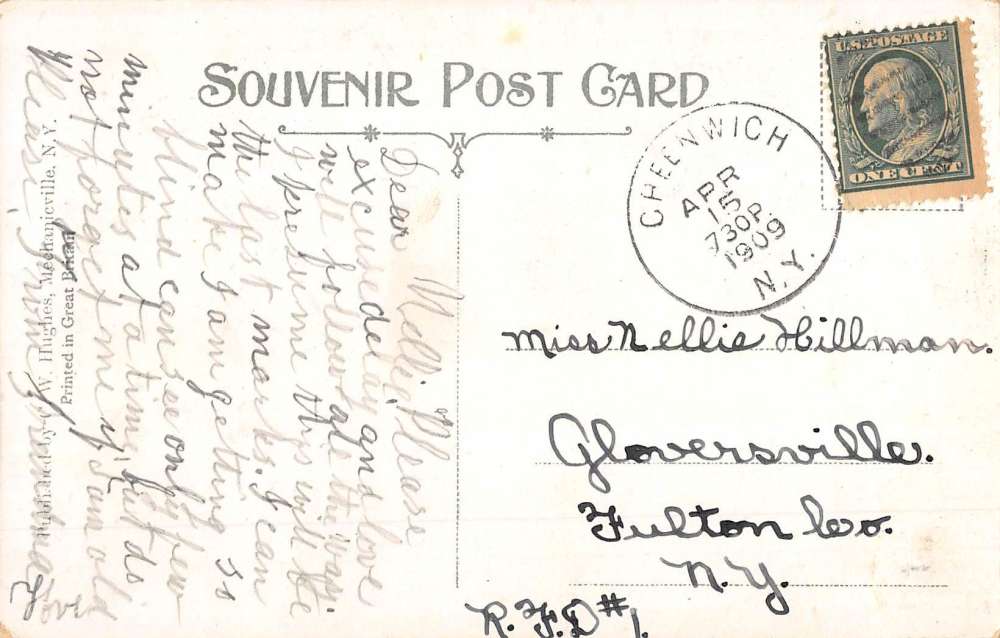 SOUVENIR POST CARD
U.S. POSTAGE
ONE CENT
GREENWICH
APR
15
730P.
1909
N.Y.
Miss Nellie Hillman.
Gloversville.
Fulton Co.
N.Y.
R.F.D #1.
Dear Nellie Please
excuse delay and love
will follow all the way
I presume this will be
the last marks I can
make I am getting so
blind can see only few
minutes at a time, but do
not forget me
Published by W. Hughes, Mechanicville, N.Y.
Printed in Great Britain